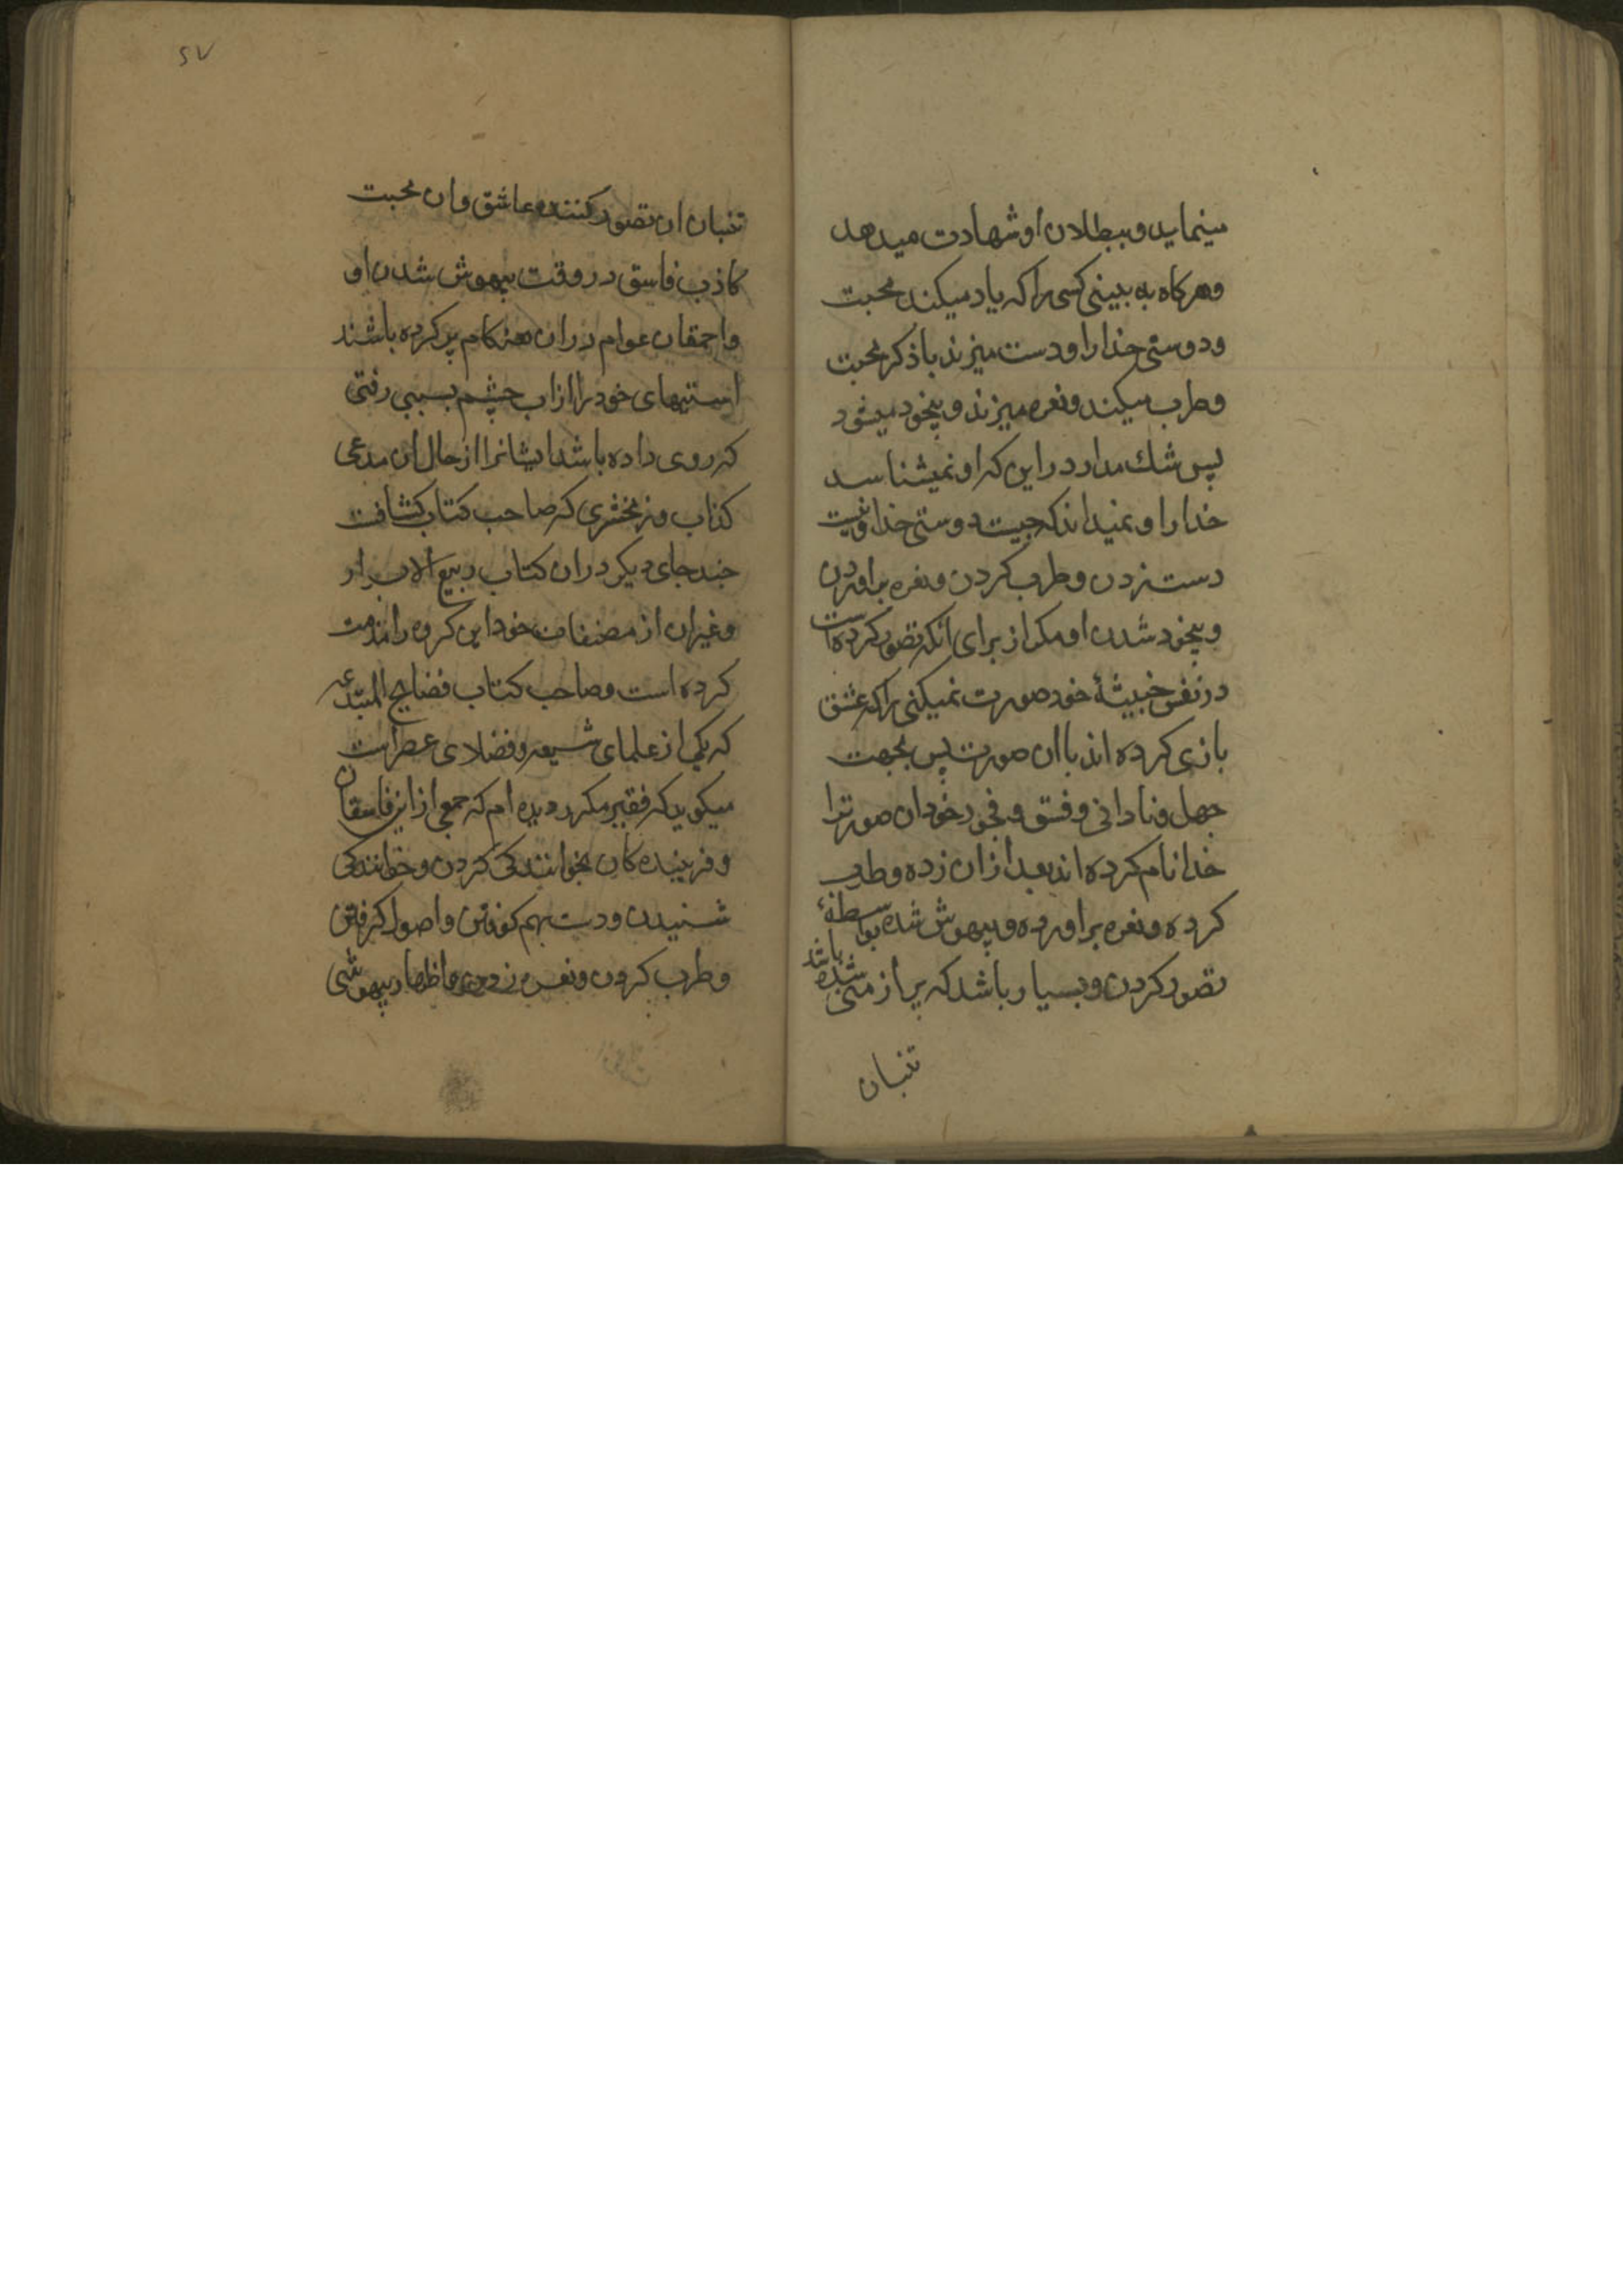 مینماید و ببطلان او شهادت میدهد
و هرکاه به بینی کسی را که یاد میکند محبت
و دوستی خدا را و دست میزند با ذکر محبت
و طرب میکند و نعره میزند و بیخود میشود
پس شك مدار در این که او نمیشناسد
خدا را و نمیداند که چیست دوستی خدا و نیست
دست زدن و طرب کردن و نعره براوردن
و بیخود شدن او مکر از برای انکه تصور کرده است
در نفس خبیثهٔ خود صورت نمیکنی را که عشق
بازی کرده اند با ان صورت پس بجهت
جهل و نادانی و فسق و فجور خود ان صورترا
خدا نام کرده اند بعد از ان زده و طرب
کرده و نعره براورده و بیهوش شده بواسطهٔ
تصور کردن و بسیار باشد که پر از منی شده باشد
تنبان
۲۷
تنبان ان تصور کننده عاشق و ان محبت
کاذب فاسق در وقت بیهوش شدن او
و احمقان عوام در ان هنکام پر کرده باشند
استینهای خود را از اب چشم بسببی رقتی
که روی داده باشد ایشانرا از حال ان مدعی
کذاب و زمخشری که صاحب کتاب کشافت
چند جای دیکر در ان کتاب ربیع الابرار
و غیر ان از مصنفات خود این کروه را مذمت
کرده است و صاحب کتاب فضایح المبتدعه
که یکی از علمای شیعه و فضلای عصر است
میکوید که فقیر مکرر دیده ام که جمعی از این فاسقان
و فریبنده کان بخوانندکی کردن و خوانندکی
شنیدن و دست بهم کوفتن و اصول کرفتن
و طرب کردن و نعره زدن و اظهار بیهوشی